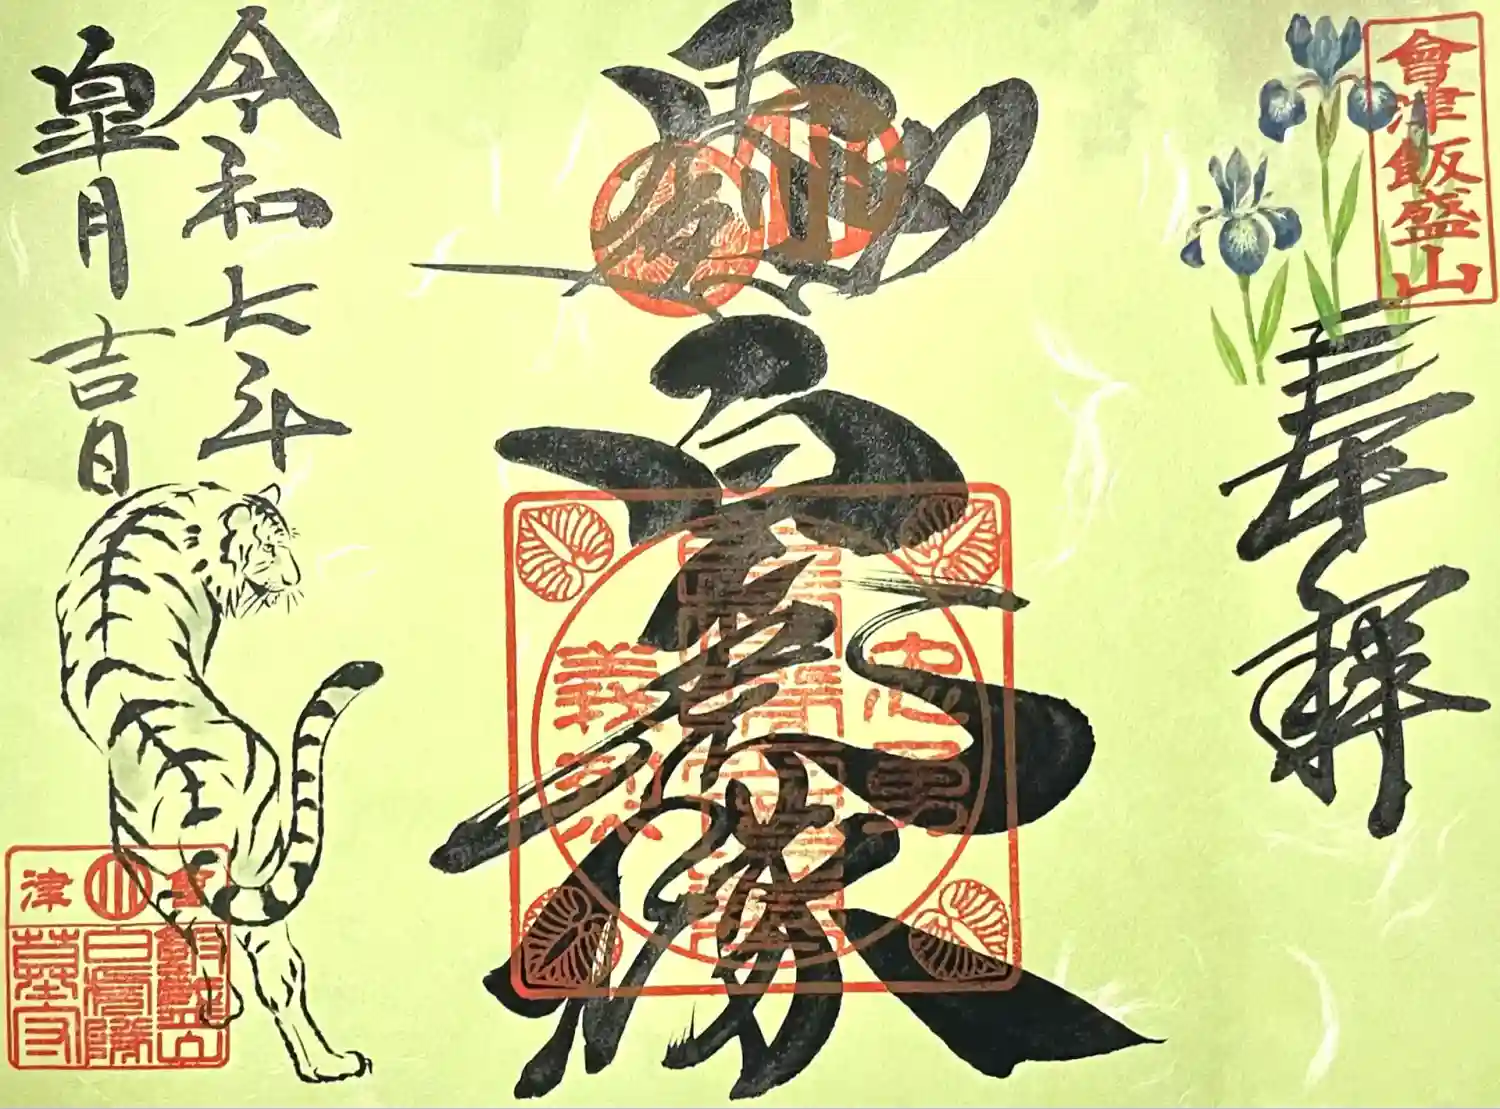 會津飯盛山
奉拝
白虎隊
忠勇
義烈
令和七年
皐月吉日
會津
飯盛山
白虎隊
墓守